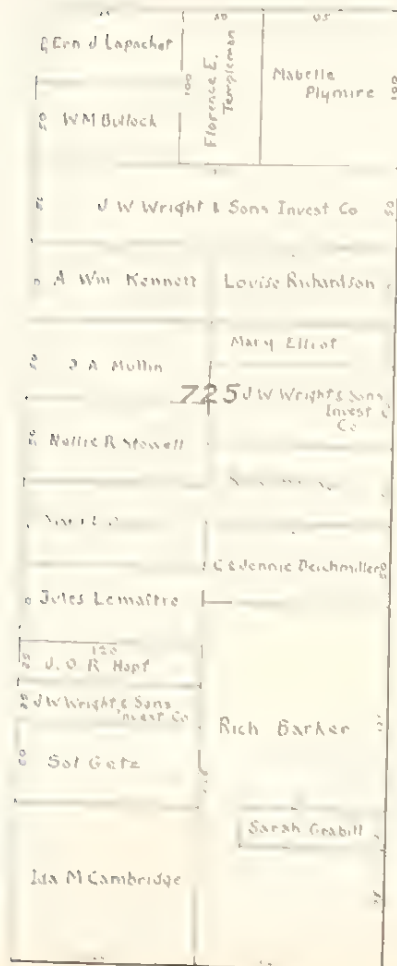 Ern J Lapachet
Florence E.
Templeman
Mabelle
Plymire
100
100
W M Bullock
J W Wright & Sons Invest Co
50
A Wm Kennett
Louise Richardson
Mary Elliot
J A Mullin
725
J W Wright & Sons
Invest
Co
Nellie R Stowell
C & Jennie Deichmiller
Jules Lemaitre
120
25
J. O. R Hopf
25
J W Wright & Sons
Invest Co
Rich Barker
50
Sol Getz
Sarah Grabill
Ida M Cambridge